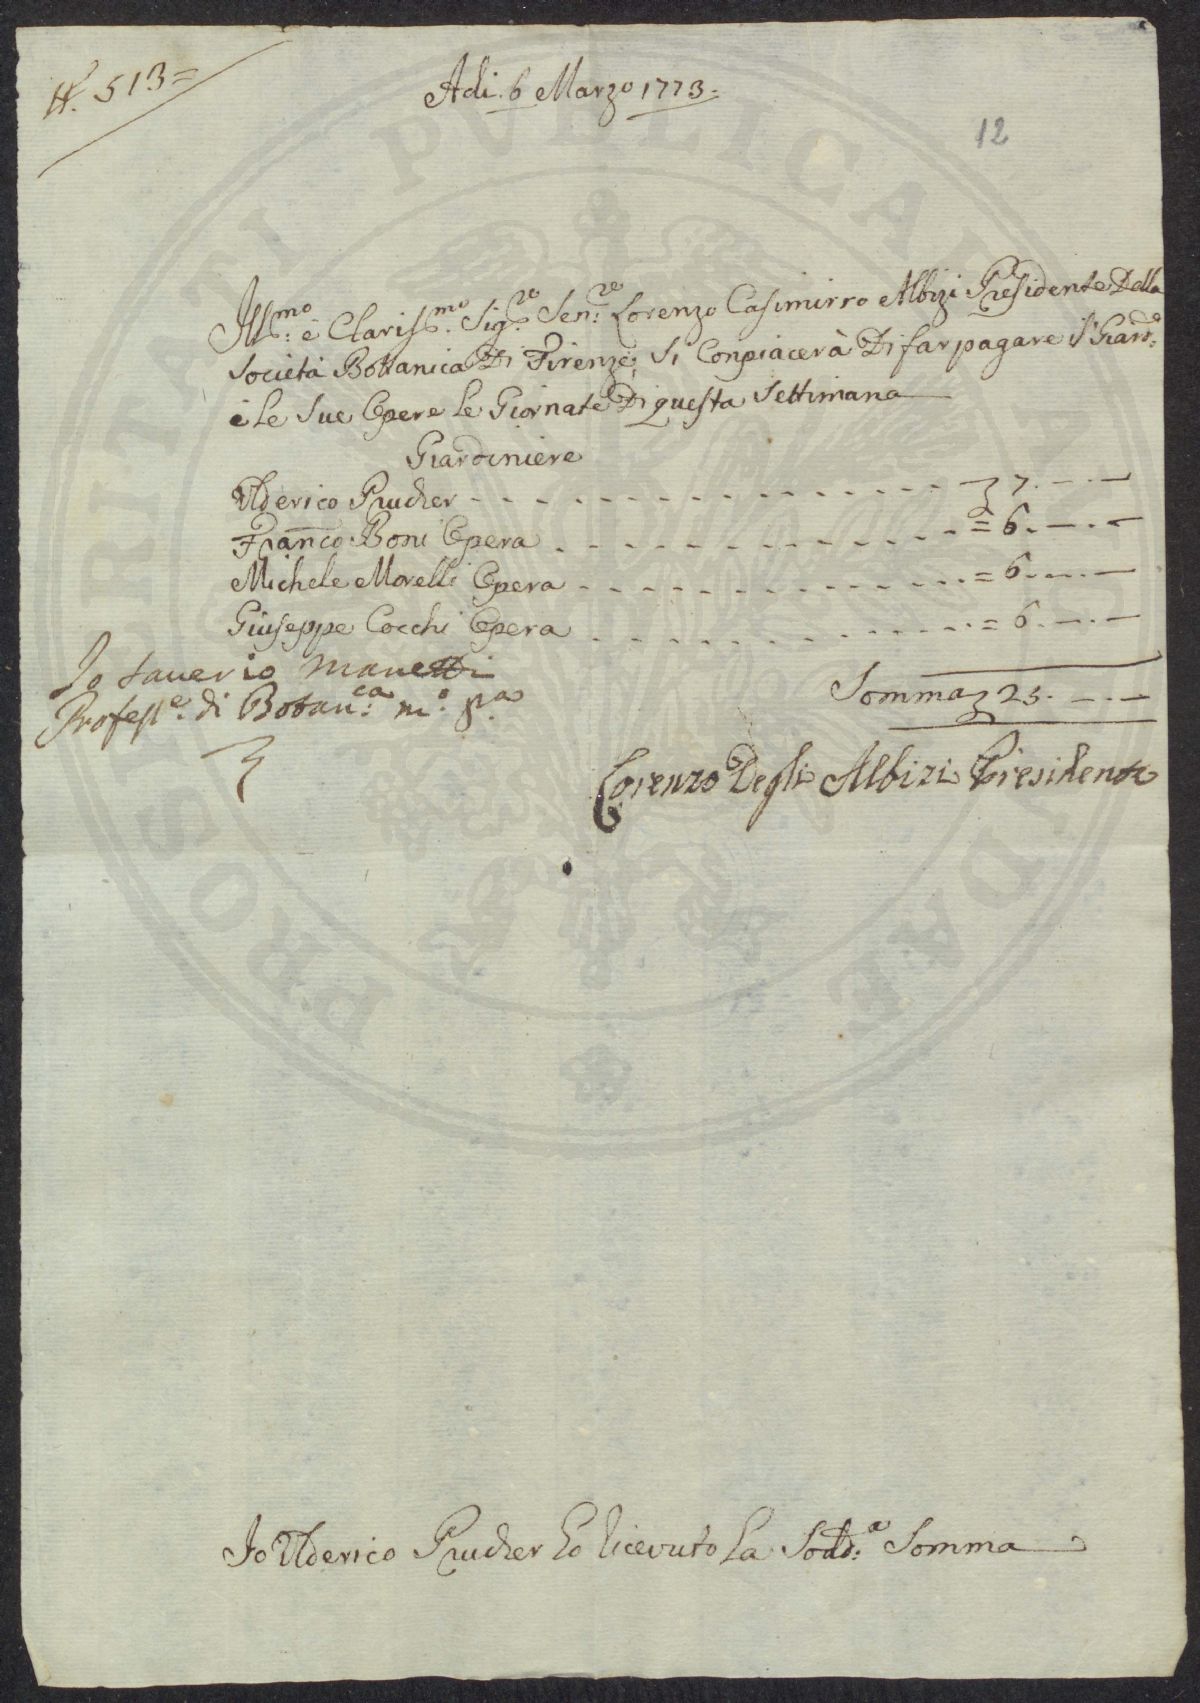 N. 513=
Adi. 6 Marzo 1773.
12
Ill.mo e Clariss.mo Sig.re Sen.re Lorenzo Casimirro Albizi Presidente Della
Società Bottanica Di Firenze; Si Conpiacerà Di far pagare il Giard.
è le Sue Opere le Giornate Di questa Settimana
Giardiniere
Ulderico Prucher - - - 7. — . —
Franco: Boni Opera - - - = 6. — . —
Michele Morelli Opera - - - = 6. — . —
Giuseppe Cocchi Opera - - - = 6. — . —
Io Saverio Manetti
Somma 25. — . —
Profess.e di Botan.ca m.o p.a
Lorenzo Degli Albizi Presidente
Io Ulderico Prucher ho Ricevuto La Sodd.a Somma
PROSPERITATI PVBLICAE AVGENDAE